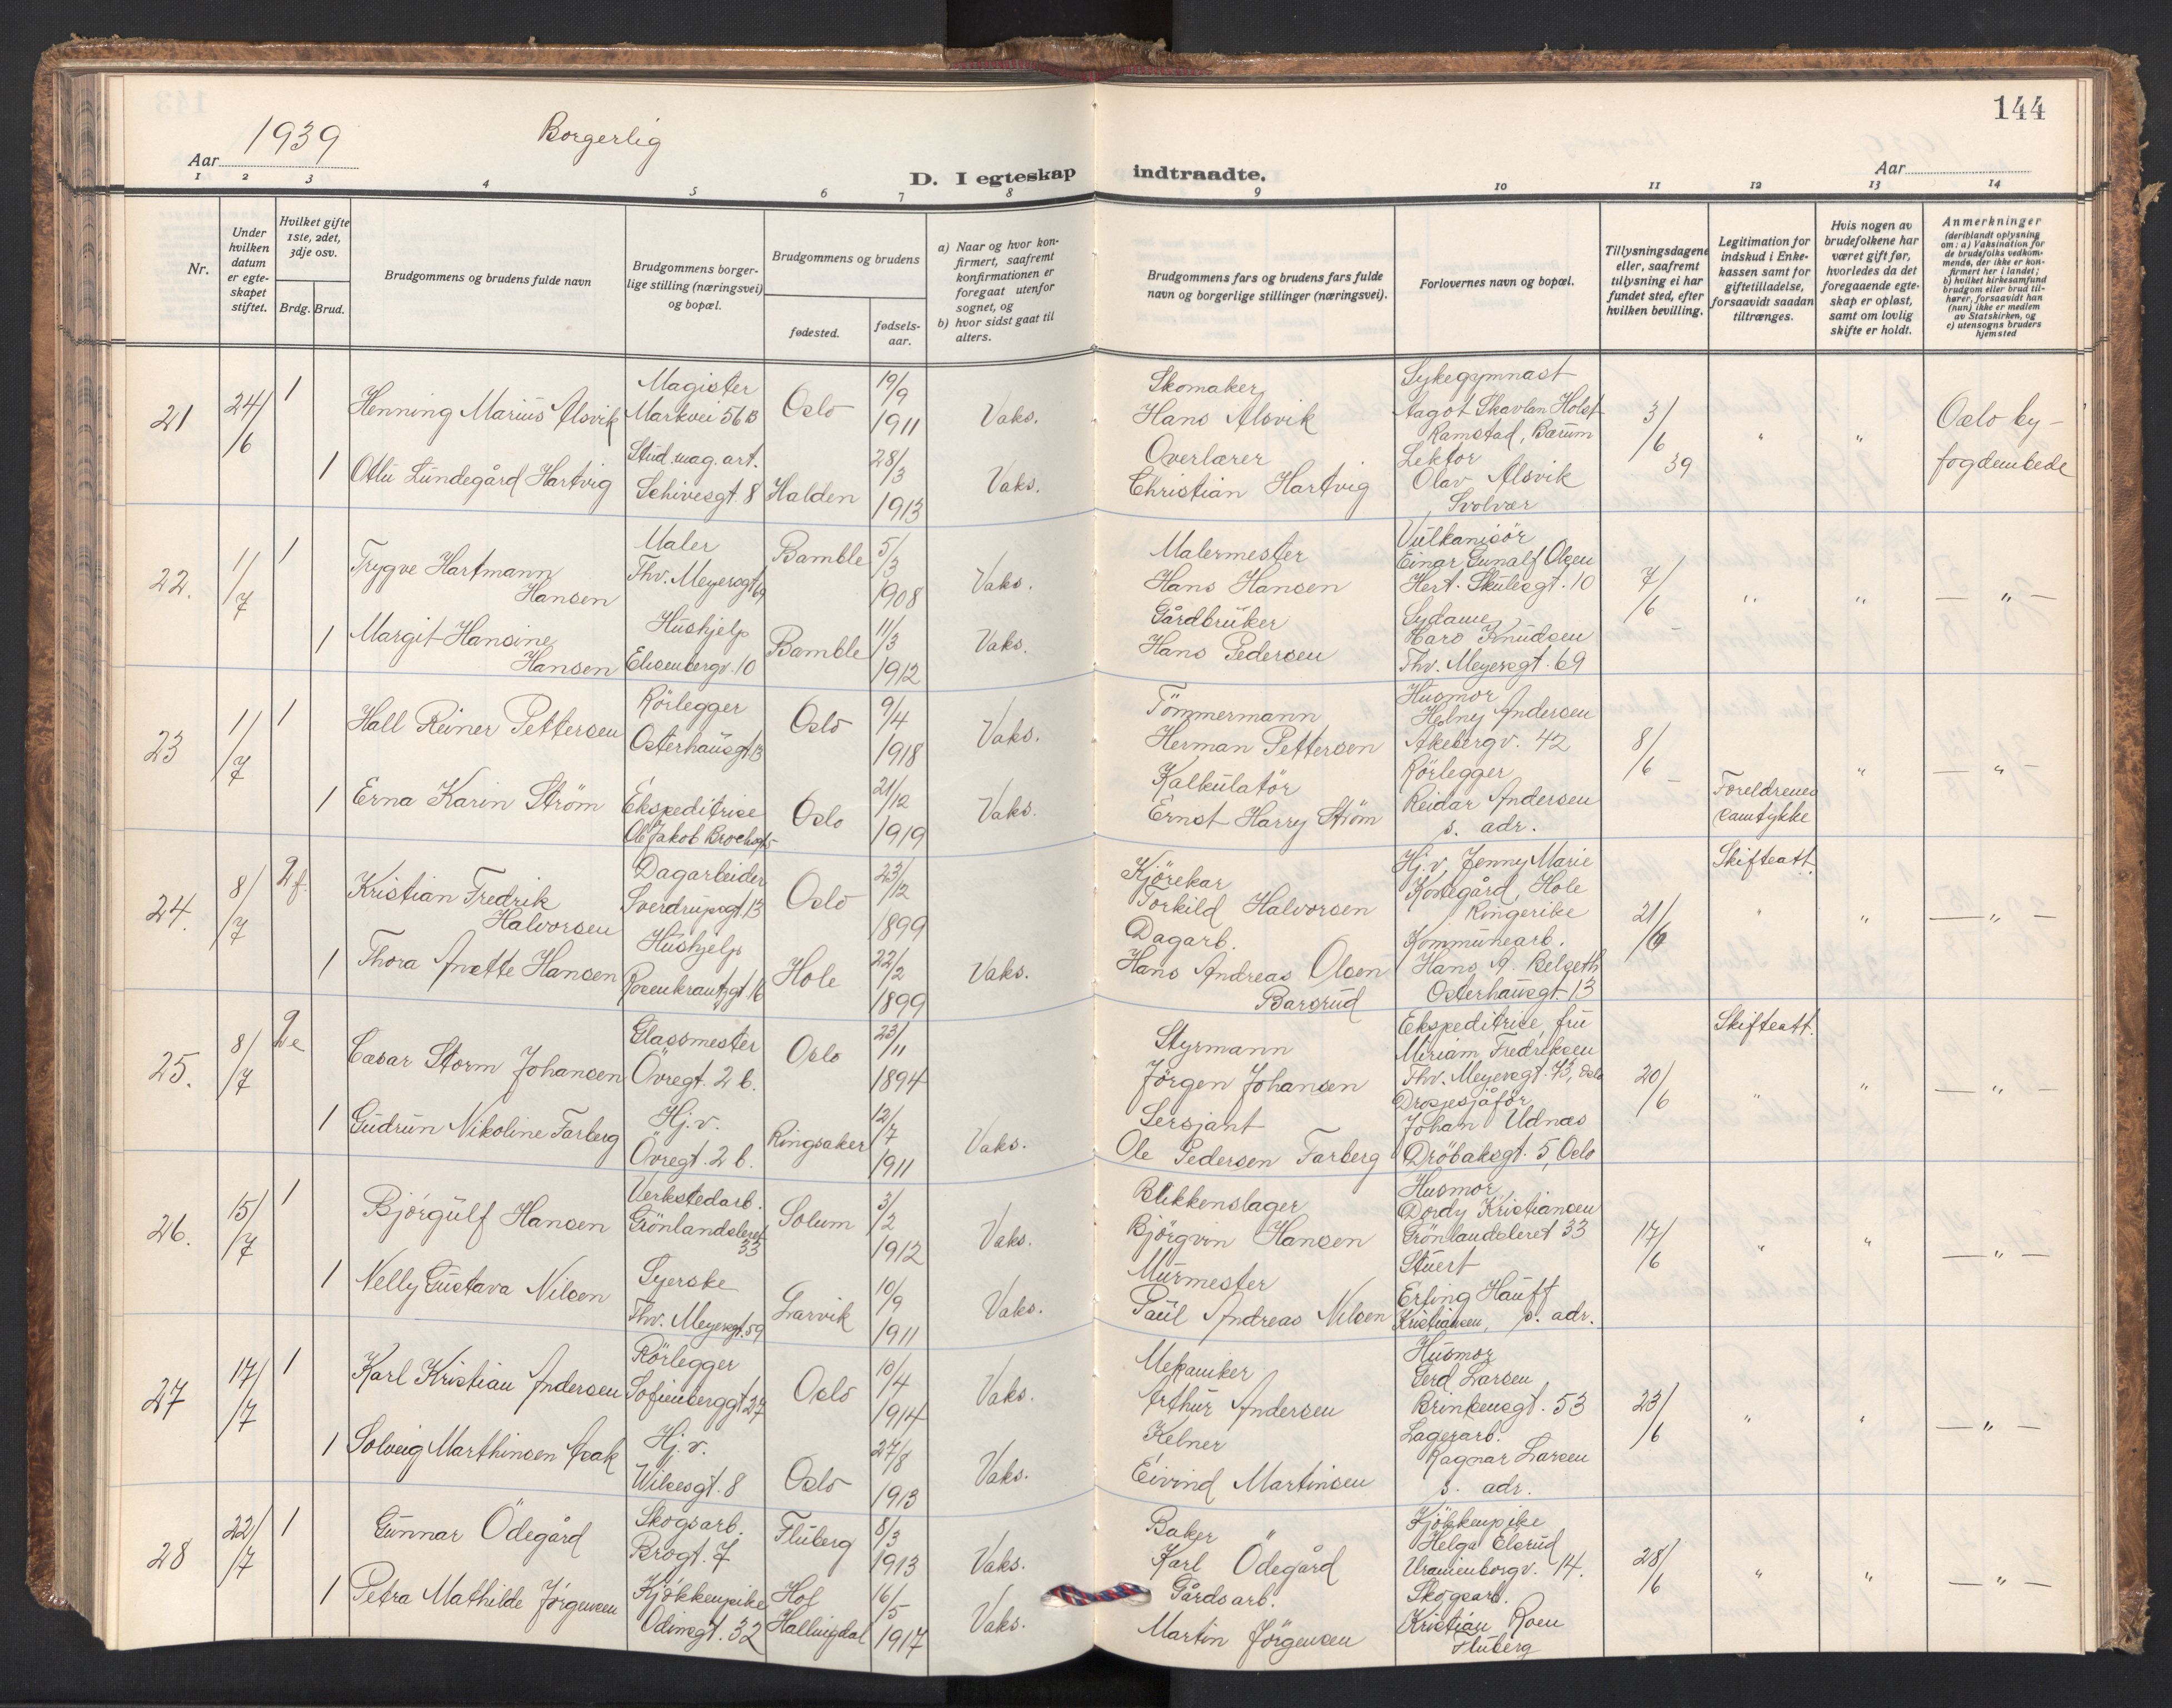 144
Aar 1939
Borgerlig
Aar
D. I egteskap indtraadte.
1 2 3 4 5 6 7 8 9 10 11 12 13 14
Nr.
Under hvilken datum er egteskapet stiftet.
Hvilket gifte 1ste, 2det, 3dje osv.
Brdg. Brud.
Brudgommens og brudens fulde navn
Brudgommens borgerlige stilling (næringsvei) og bopæl.
Brudgommens og brudens
fødested.
fødselsaar.
a) Naar og hvor konfirmert, saafremt konfirmationen er foregaat utenfor sognet, og
b) hvor sidst gaat til alters.
Brudgommens fars og brudens fars fulde navn og borgerlige stillinger (næringsvei).
Forlovernes navn og bopæl.
Tillysningsdagene eller, saafremt tillysning ei har fundet sted, efter hvilken bevilling.
Legitimation for indskud i Enkekassen samt for giftetilladelse, forsaavidt saadan tiltrænges.
Hvis nogen av brudefolkene har været gift før, hvorledes da det foregaaende egteskap er opløst, samt om lovlig skifte er holdt.
Anmerkninger
(deriblandt oplysning om: a) Vaksination for de brudefolks vedkommende, der ikke er konfirmert her i landet; b) hvilket kirkesamfund brudgom eller brud tilhører, forsaavidt han (hun) ikke er medlem av Statskirken, og c) utensogns bruders hjemsted
21 24/6 1 Henning Marius Alsvik Magister Markvei 56 B Oslo 19/9 1911 Vaks. Skomaker Hans Alsvik Sykegymnast Aagot Skavlan Holst Ramstad, Bærum 3/6 39 " " Oslo byfogdembede
1 Otlu Lundegård Hartvig Stud. mag. art. Schivesgt. 8 Halden 28/3 1913 Vaks. Overlærer Christian Hartvig Lektor Olav Alsvik Svolvær
22. 1/7 1 Trygve Hartmann Hansen Maler Thv. Meyersgt 69 Bamble 5/3 1908 Vaks. Malermester Hans Hansen Vulkanisör Einar Gunalf Olsen Hert. Skulesgt. 10 7/6 " " — " —
1 Margit Hansine Hansen Hushjelp Elisenbergv. 10 Bamble 11/3 1912 Vaks. Gårdbruker Hans Pedersen Sydame Karo Knudsen Thv. Meyersgt. 69
23 1/7 1 Hall Reiner Pettersen Rörlegger Osterhausgt 13 Oslo 9/4 1918 Vaks. Tömmermann Herman Pettersen Husmor Helny Andersen Åkebergv. 42 8/6 " — " —
1 Erna Karin Strøm Ekspeditrise Ole Jakob Brochsgt 5 Oslo 21/12 1919 Vaks. Kalkulatör Ernst Harry Strøm Rörlegger Reidar Andersen s. adr. Foreldrenes samtykke
24. 8/7 2 f. Kristian Fredrik Halvorsen Dagarbeider Sverdrupsgt. 13 Oslo 23/12 1899 Kjörekar Torkild Halvorsen Hj.v. Jenny Marie Kortegård, Hole Ringerike 21/6 Skifteatt. " " — " —
1 Thora Anette Hansen Hushjelp Rosenkrantzgt 16 Hole 22/2 1899 Vaks. Dagarb. Hans Andreas Olsen Barsrud Kommunearb. Hans A. Belgeth Osterhausgt. 13
25. 8/7 2 e Cæsar Storm Johansen Glassmester Övregt. 2 b. Oslo 23/11 1894 Styrmann Jörgen Johansen Ekspeditrise, fru Miriam Fredriksen Thv. Meyersgt. 73, Oslo 20/6 Skifteatt. " " — " —
1 Gudrun Nikoline Farberg Hj.v. Övregt. 2 b. Ringsaker 12/7 1911 Vaks. Sersjant Ole Pedersen Farberg Drosjesjåför Johan Udnæs Dröbaksgt. 5, Oslo
26. 15/7 1 Björgulf Hansen Verkstedarb. Grönlandsleret 33 Solum 3/2 1912 Vaks. Blikkenslager Björgvin Hansen Husmor Dordy Kristiansen Grönlandsleret 33 17/6 " " — " —
1 Nelly Gustava Nilsen Syerske Thv. Meyersgt. 59 Larvik 10/9 1911 Vaks. Murmester Paul Andreas Nilsen Stuert Erling Hauff Kristiansen, s. adr.
27 17/7 1 Karl Kristian Andersen Rörlegger Sofienberggt 27 Oslo 10/4 1914 Vaks. Mekaniker Arthur Andersen Husmor Gerd Larsen Brinkensgt. 53 23/6 " " — " —
1 Solveig Marthinsen Ask Hj.v. Wilsesgt. 8 Oslo 27/8 1913 Vaks. Kelner Eivind Martinsen Lagerarb. Ragnar Larsen s. adr.
28 22/7 1 Gunnar Ödegård Skogsarb. Brogt. 7 Fluberg 8/3 1913 Vaks. Baker Karl Ödegård Kjökkenpike Helga Elsrud Uranienborgv. 14. 28/6 " " — " —
1 Petra Mathilde Jörgensen Kjökkenpike Odinsgt. 32 Hof Hallingdal 16/5 1917 Vaks. Gårdsarb. Martin Jörgensen Skogsarb. Kristian Roen Fluberg